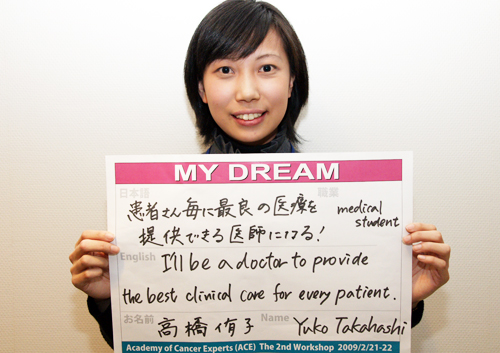 MY DREAM
日本語 職業
患者さん毎に最良の医療を medical
提供できる医師になる! student
English I'll be a doctor to provide
the best clinical care for every patient.
お名前 高橋侑子 Name Yuko Takahashi
Academy of Cancer Experts (ACE) The 2nd Workshop 2009/2/21-22